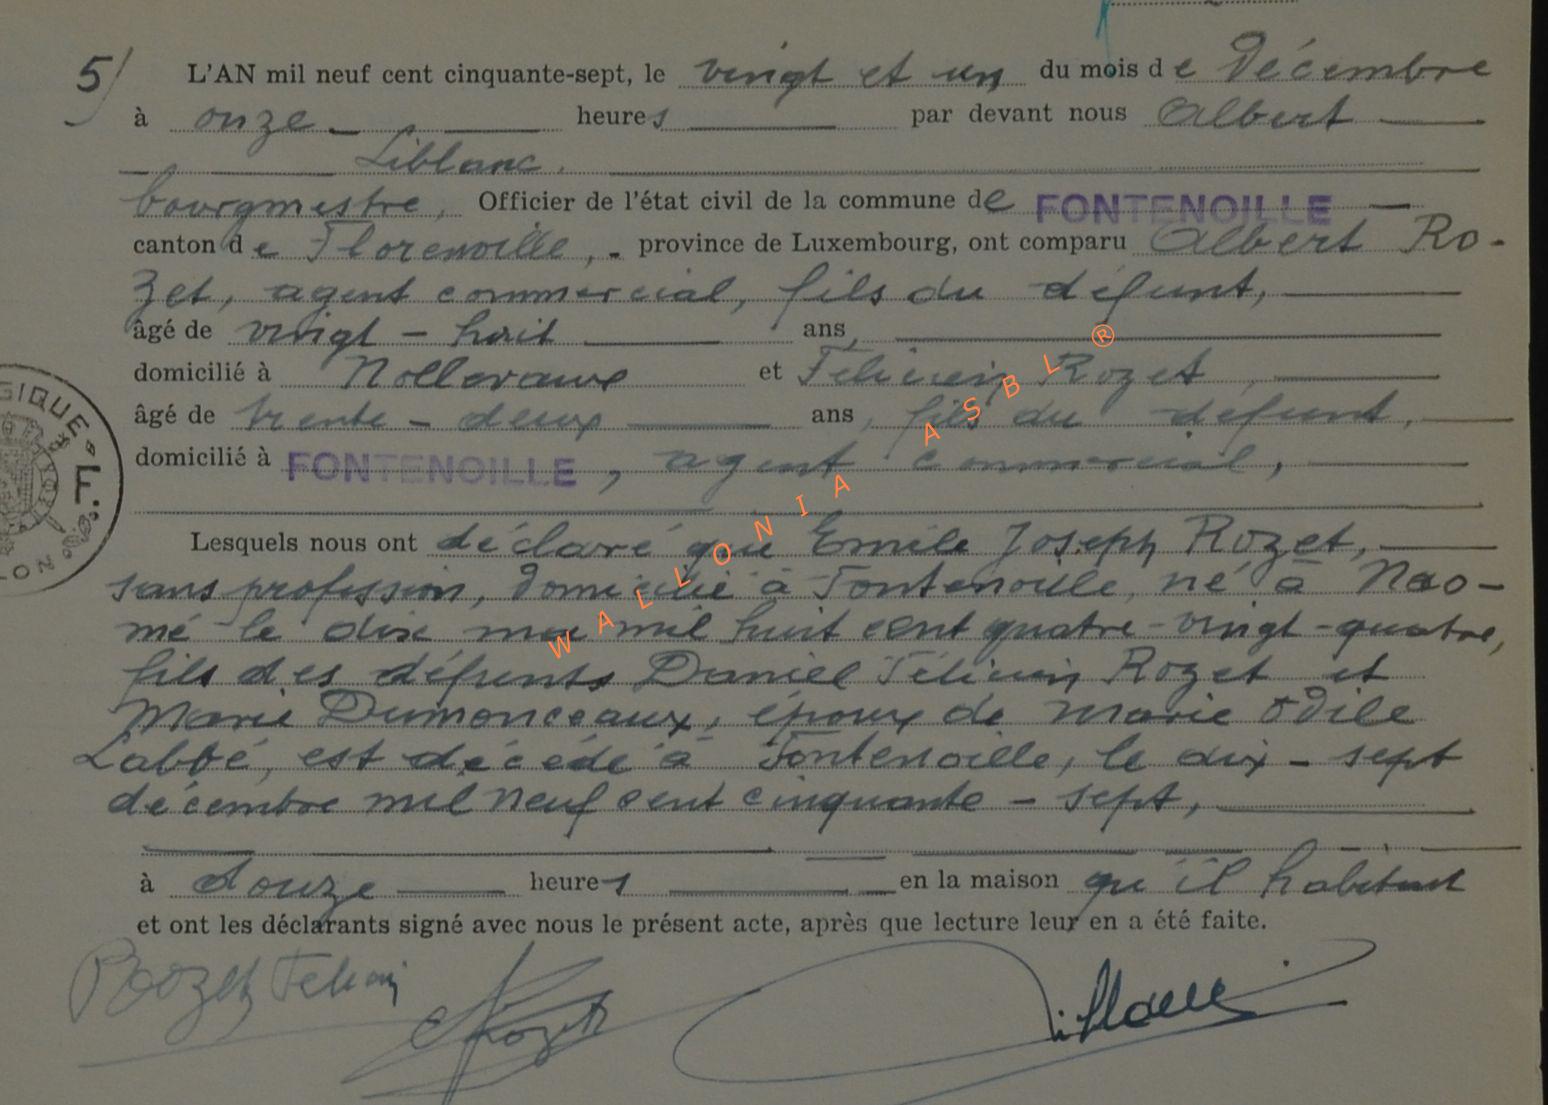 5/ L'AN mil neuf cent cinquante-sept, le vingt et un du mois de Décembre
à onze heures par devant nous Albert
Liblanc.
bourgmestre, Officier de l'état civil de la commune de FONTENOILLE
canton de Florenville, province de Luxembourg, ont comparu Albert Ro-
zet, agent commercial, fils du défunt,
âgé de vingt-huit ans,
domicilié à Nollevaux et Félicien Rozet,
âgé de trente-deux ans, fils du défunt,
domicilié à FONTENOILLE, agent commercial,
Lesquels nous ont déclaré que Emile Joseph Rozet,
sans profession, domicilié à Fontenoille, né à Nao-
mé le dix mai mil huit cent quatre-vingt-quatre,
fils des défunts Daniel Félicien Rozet et
Marie Dumonceaux, époux de Marie Odile
Labbé, est décédé à Fontenoille, le dix-sept
décembre mil neuf cent cinquante-sept,
à douze heures en la maison qu'il habitait
et ont les déclarants signé avec nous le présent acte, après que lecture leur en a été faite.
Rozet Félicien Rozet Liblanc
GIQUE
WALLONIA ASBL ®